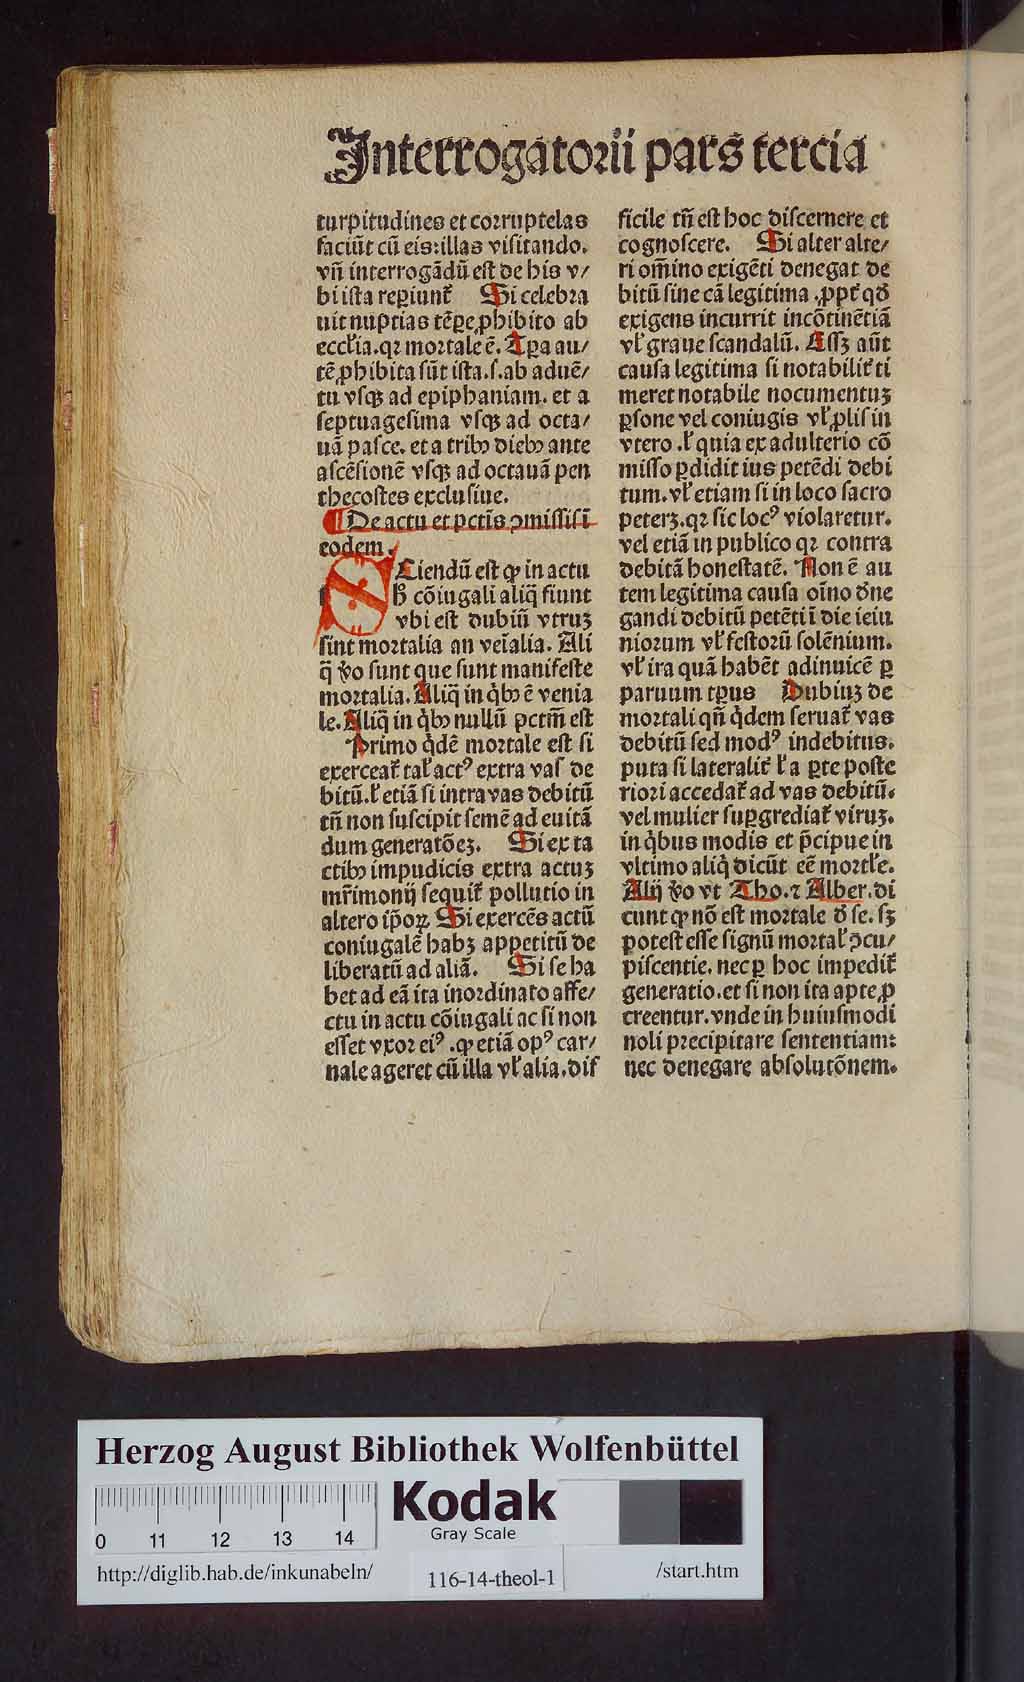 Interrogatorii pars tercia
turpitudines et corruptelas
faciūt cū eis: illas visitando.
vñ interrogādū est de his v/
bi ista reꝑiunt᷑ Si celebra
uit nuptias tēꝑe ꝓhibito ab
eccľia. qꝛ mortale ē. Tꝑa au/
tē ꝓhibita sūt ista. s. ab aduē/
tu vsqꝫ ad epiphaniam. et a
septuagesima vsqꝫ ad octa/
uā pasce. et a tribꝰ diebꝰ ante
ascēsionē vsqꝫ ad octauā pen
thecostes exclusiue.
¶ De actu et pctīs ꝯmissis ī
eodem.
SCiendū est ꝙ in actu
ħ cōiugali aliq̄ fiunt
vbi est dubiū vtruꝫ
sint mortalia an veīalia. Ali
q̄ ṽo sunt que sunt manifeste
mortalia. Aliq̄ in q̇bꝰ ē venia
le. Aliq̄ in q̇bꝰ nullū pctm̄ est
Primo q̇dē mortale est si
exerceat᷑ tal̕ actꝰ extra vas de
bitū. ľ etiā si intra vas debitū
tñ non suscipit semē ad euitā
dum generatōeꝫ. Si ex ta
ctibꝰ impudicis extra actuꝫ
mr̄imonij sequit᷑ pollutio in
altero ip̄oꝝ Si exercēs actū
coniugalē habꝫ appetitū de
liberatū ad aliā. Si se ha
bet ad eā ita inordinato affe/
ctu in actu cōiugali ac si non
esset vxor eiꝰ. ꝙ etiā opꝰ car/
nale ageret cū illa vľ alia. dif
ficile tñ est hoc discernere et
cognoscere. Si alter alte/
ri om̄ino exigēti denegat de
bitū sine cā legitima. ꝓpt᷑ qđ
exigens incurrit incōtinētiā
vľ graue scandalū. Assꝫ aūt
causa legitima si notabilit᷑ ti
meret notabile nocumentuꝫ
ꝑsone vel coniugis vľ ꝓlis in
vtero. ľ quia ex adulterio cō
misso ꝑdidit ius petēdi debi
tum. vľ etiam si in loco sacro
peterꝫ. qꝛ sic locꝰ violaretur.
vel etiā in publico qꝛ contra
debitā honestatē. Non ē au
tem legitima causa oīno đne
gandi debitū petēti ī die ieiu
niorum vľ festorū solēnium.
vľ ira quā habēt adinuicē ꝑ
paruum tꝑus Dubiuꝫ de
mortali qñ q̇dem seruat᷑ vas
debitū sed modꝰ indebitus.
puta si lateralit᷑ ľ a ꝑte poste
riori accedat᷑ ad vas debitū.
vel mulier suꝑgrediat᷑ viruꝫ.
in q̇bus modis et p̄cipue in
vltimo aliq̇ dicūt eē mortľe.
Alij ṽo vt Tho. ⁊ Alber. di
cunt ꝙ nō est mortale đ se. sꝫ
potest esse signū mortal̕ ꝯcu/
piscentie. nec ꝑ hoc impedit᷑
generatio. et si non ita apte ꝓ
creentur. vnde in huiusmodi
noli precipitare sententiam:
nec denegare absolutōnem.
Herzog August Bibliothek Wolfenbüttel
Kodak
Gray Scale
0 11 12 13 14
http://diglib.hab.de/inkunabeln/
116-14-theol-1
/start.htm